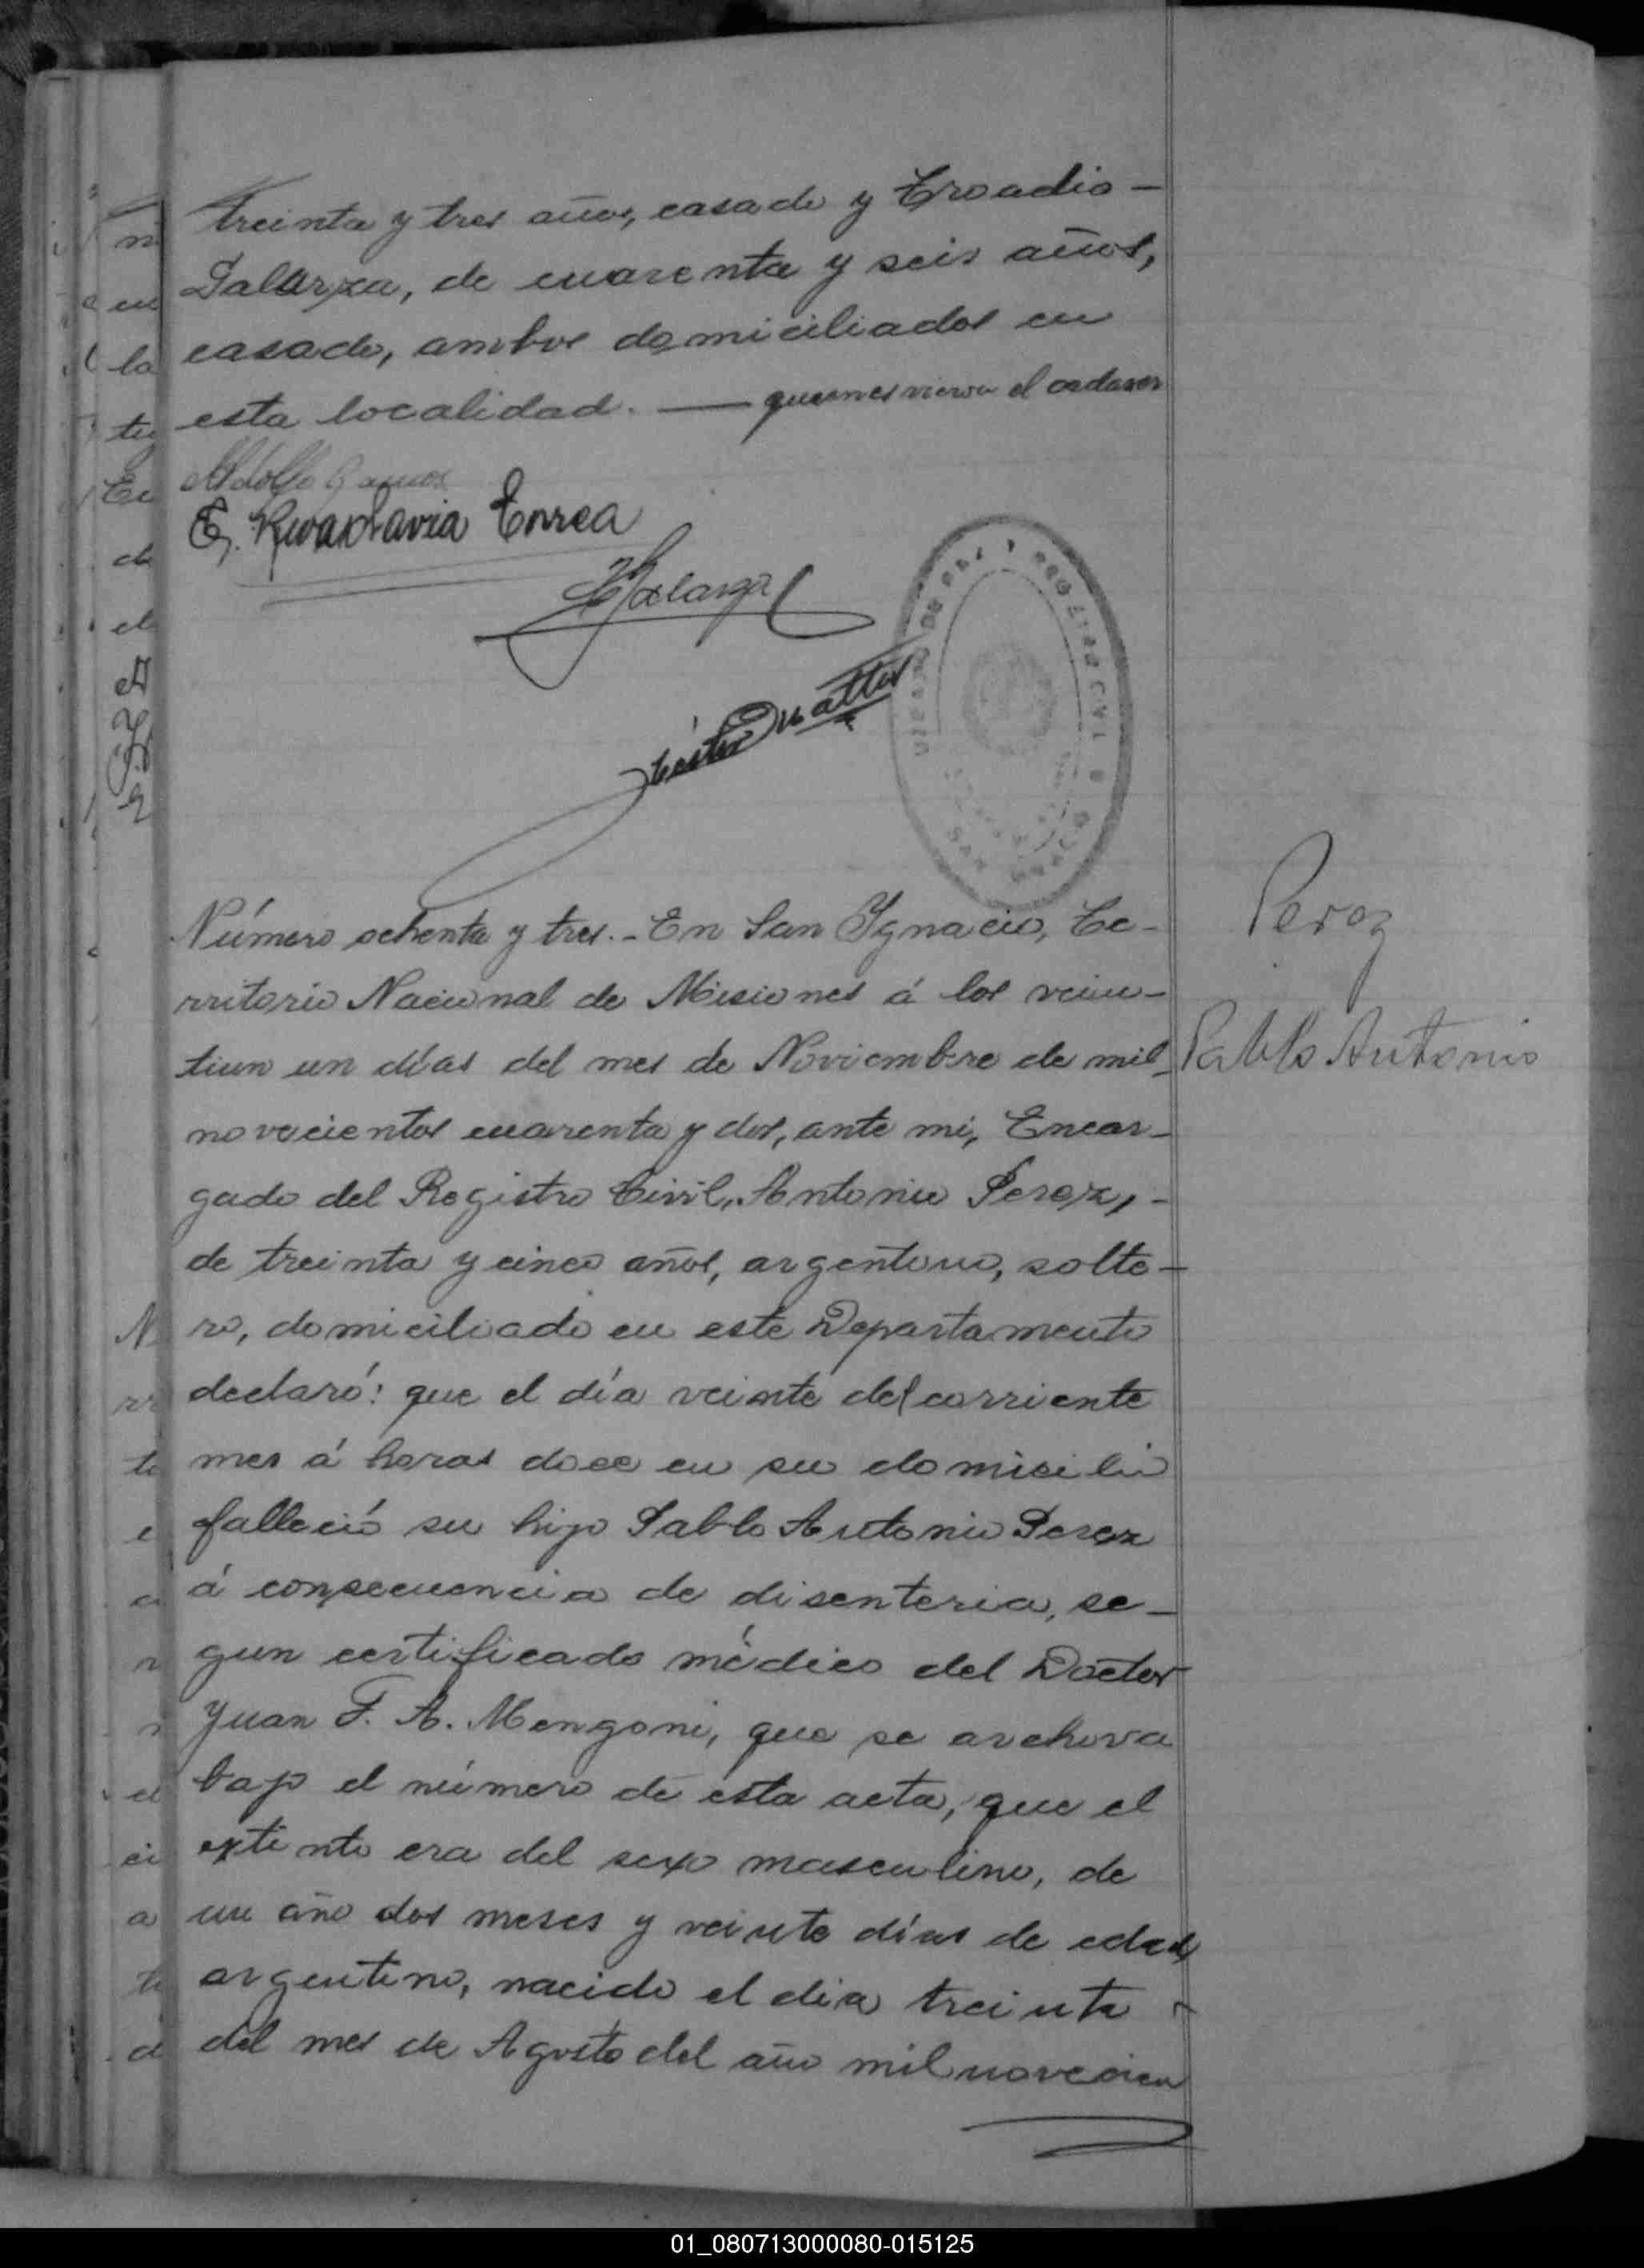 treinta y tres años, casado y Troadio —
Salarza, de cuarenta y seis años,
casado, ambos domiciliados en
esta localidad. — quienes vieron el cadaver
Adolfo Ramos
Correa
Número ochenta y tres.- En San Ygnacio, Te-
rritorio Nacional de Misiones á los vein-
tiun un días del mes de Noviembre de mil
novecientos cuarenta y dos, ante mi, Encar-
gado del Registro Civil, Antonio Perez, -
de treinta y cinco años, argentino, solte-
ro, domiciliado en este Departamento
declaró: que el día veinte del corriente
mes á horas doce en su domicilio
falleció su hijo Pablo Antonio Perez
á consecuencia de disenteria, se-
gun certificado médico del Doctor
Juan F. A. Mengoni, que se archiva
bajo el número de esta acta, que el
extinto era del sexo masculino, de
un año dos meses y veinte días de edad
argentino, nacido el dia treinta
del mes de Agosto del año mil novecien
Perez
Pablo Antonio
01_080713000080-015125